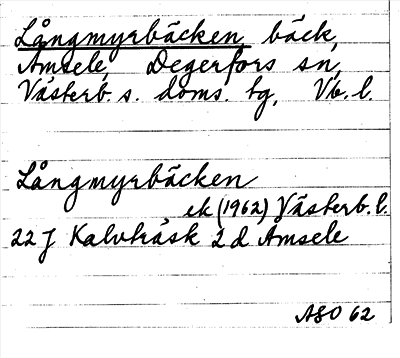 Långmyrbäcken, bäck,
Amsele, Degerfors sn,
Västerb. s. doms. tg, Vb. l.
Långmyrbäcken
ek (1962) Västerb. l.
22 J Kalvträsk 2 d Amsele
ASO 62